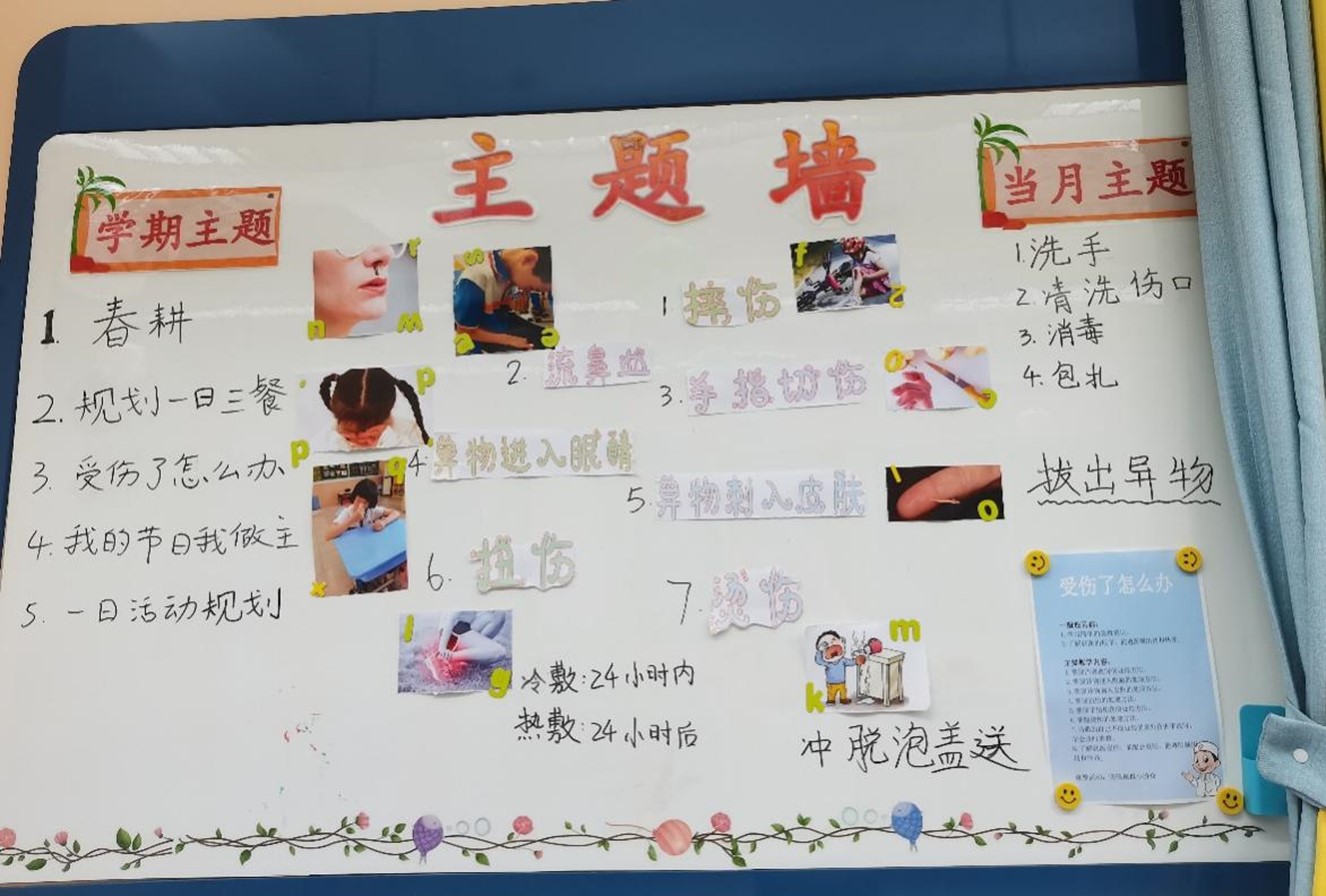 主题墙
学期主题
1. 春耕
2. 规划一日三餐
3. 受伤了怎么办
4. 我的节日我做主
5. 一日活动规划
1 摔伤
2. 流鼻血
3. 手指切伤
4. 异物进入眼睛
5. 异物刺入皮肤
6. 扭伤
冷敷:24小时内
热敷:24小时后
7. 烫伤
冲脱泡盖送
当月主题
1. 洗手
2. 清洗伤口
3. 消毒
4. 包扎
拔出异物
受伤了怎么办